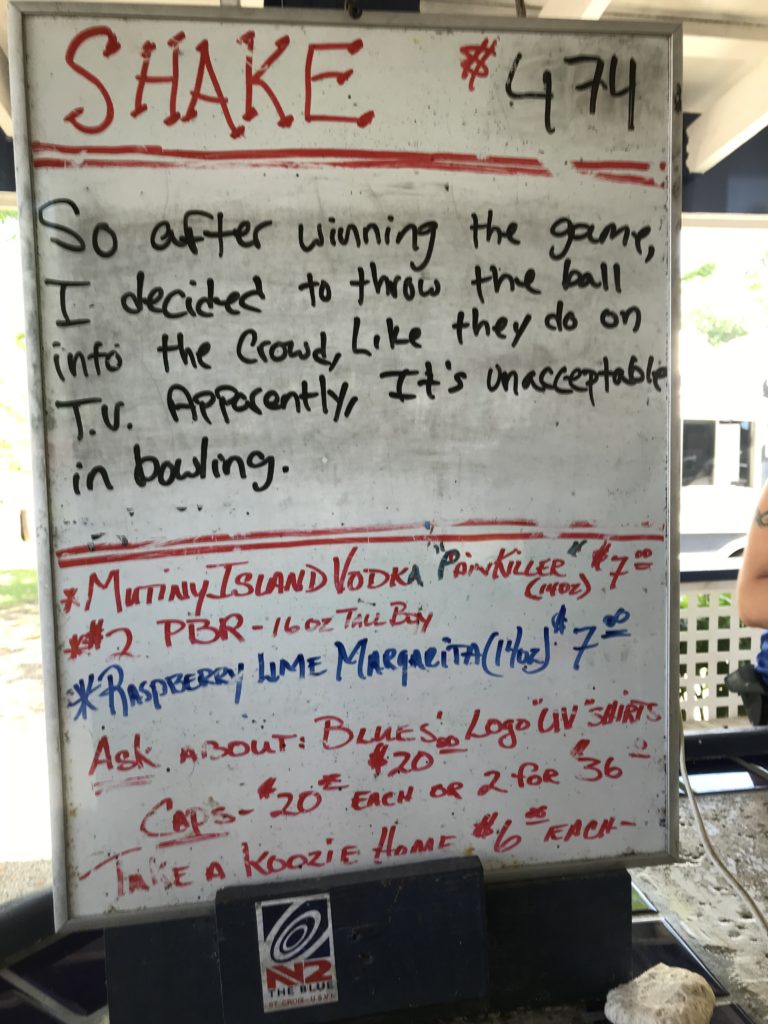 SHAKE $474
So after winning the game,
I decided to throw the ball
into the crowd, Like they do on
T.V. Apparently, It's unacceptable
in bowling.
*MUTINY ISLAND VODKA "PAINKILLER" $7.00
(14oz)
*$2 PBR - 16 oz TALL BOY
*RASPBERRY LIME MARGARITA (14oz) $7.00
ASK ABOUT: BLUES' LOGO "UV" SHIRTS
$20.00
CAPS - $20 EACH OR 2 FOR $36
TAKE A KOOZIE HOME $6.00 EACH-
N2
THE BLUE
ST. CROIX - U.S.V.I.